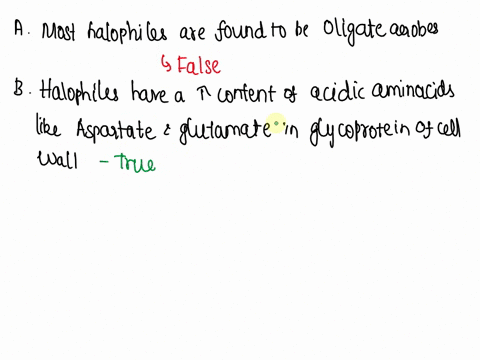 A. Most halophiles are found to be Oligate aerobes
↳ False
B. Halophiles have a ↑ content of acidic aminoacids
like Aspastate & glutamate in glycoprotein of cell
wall - True